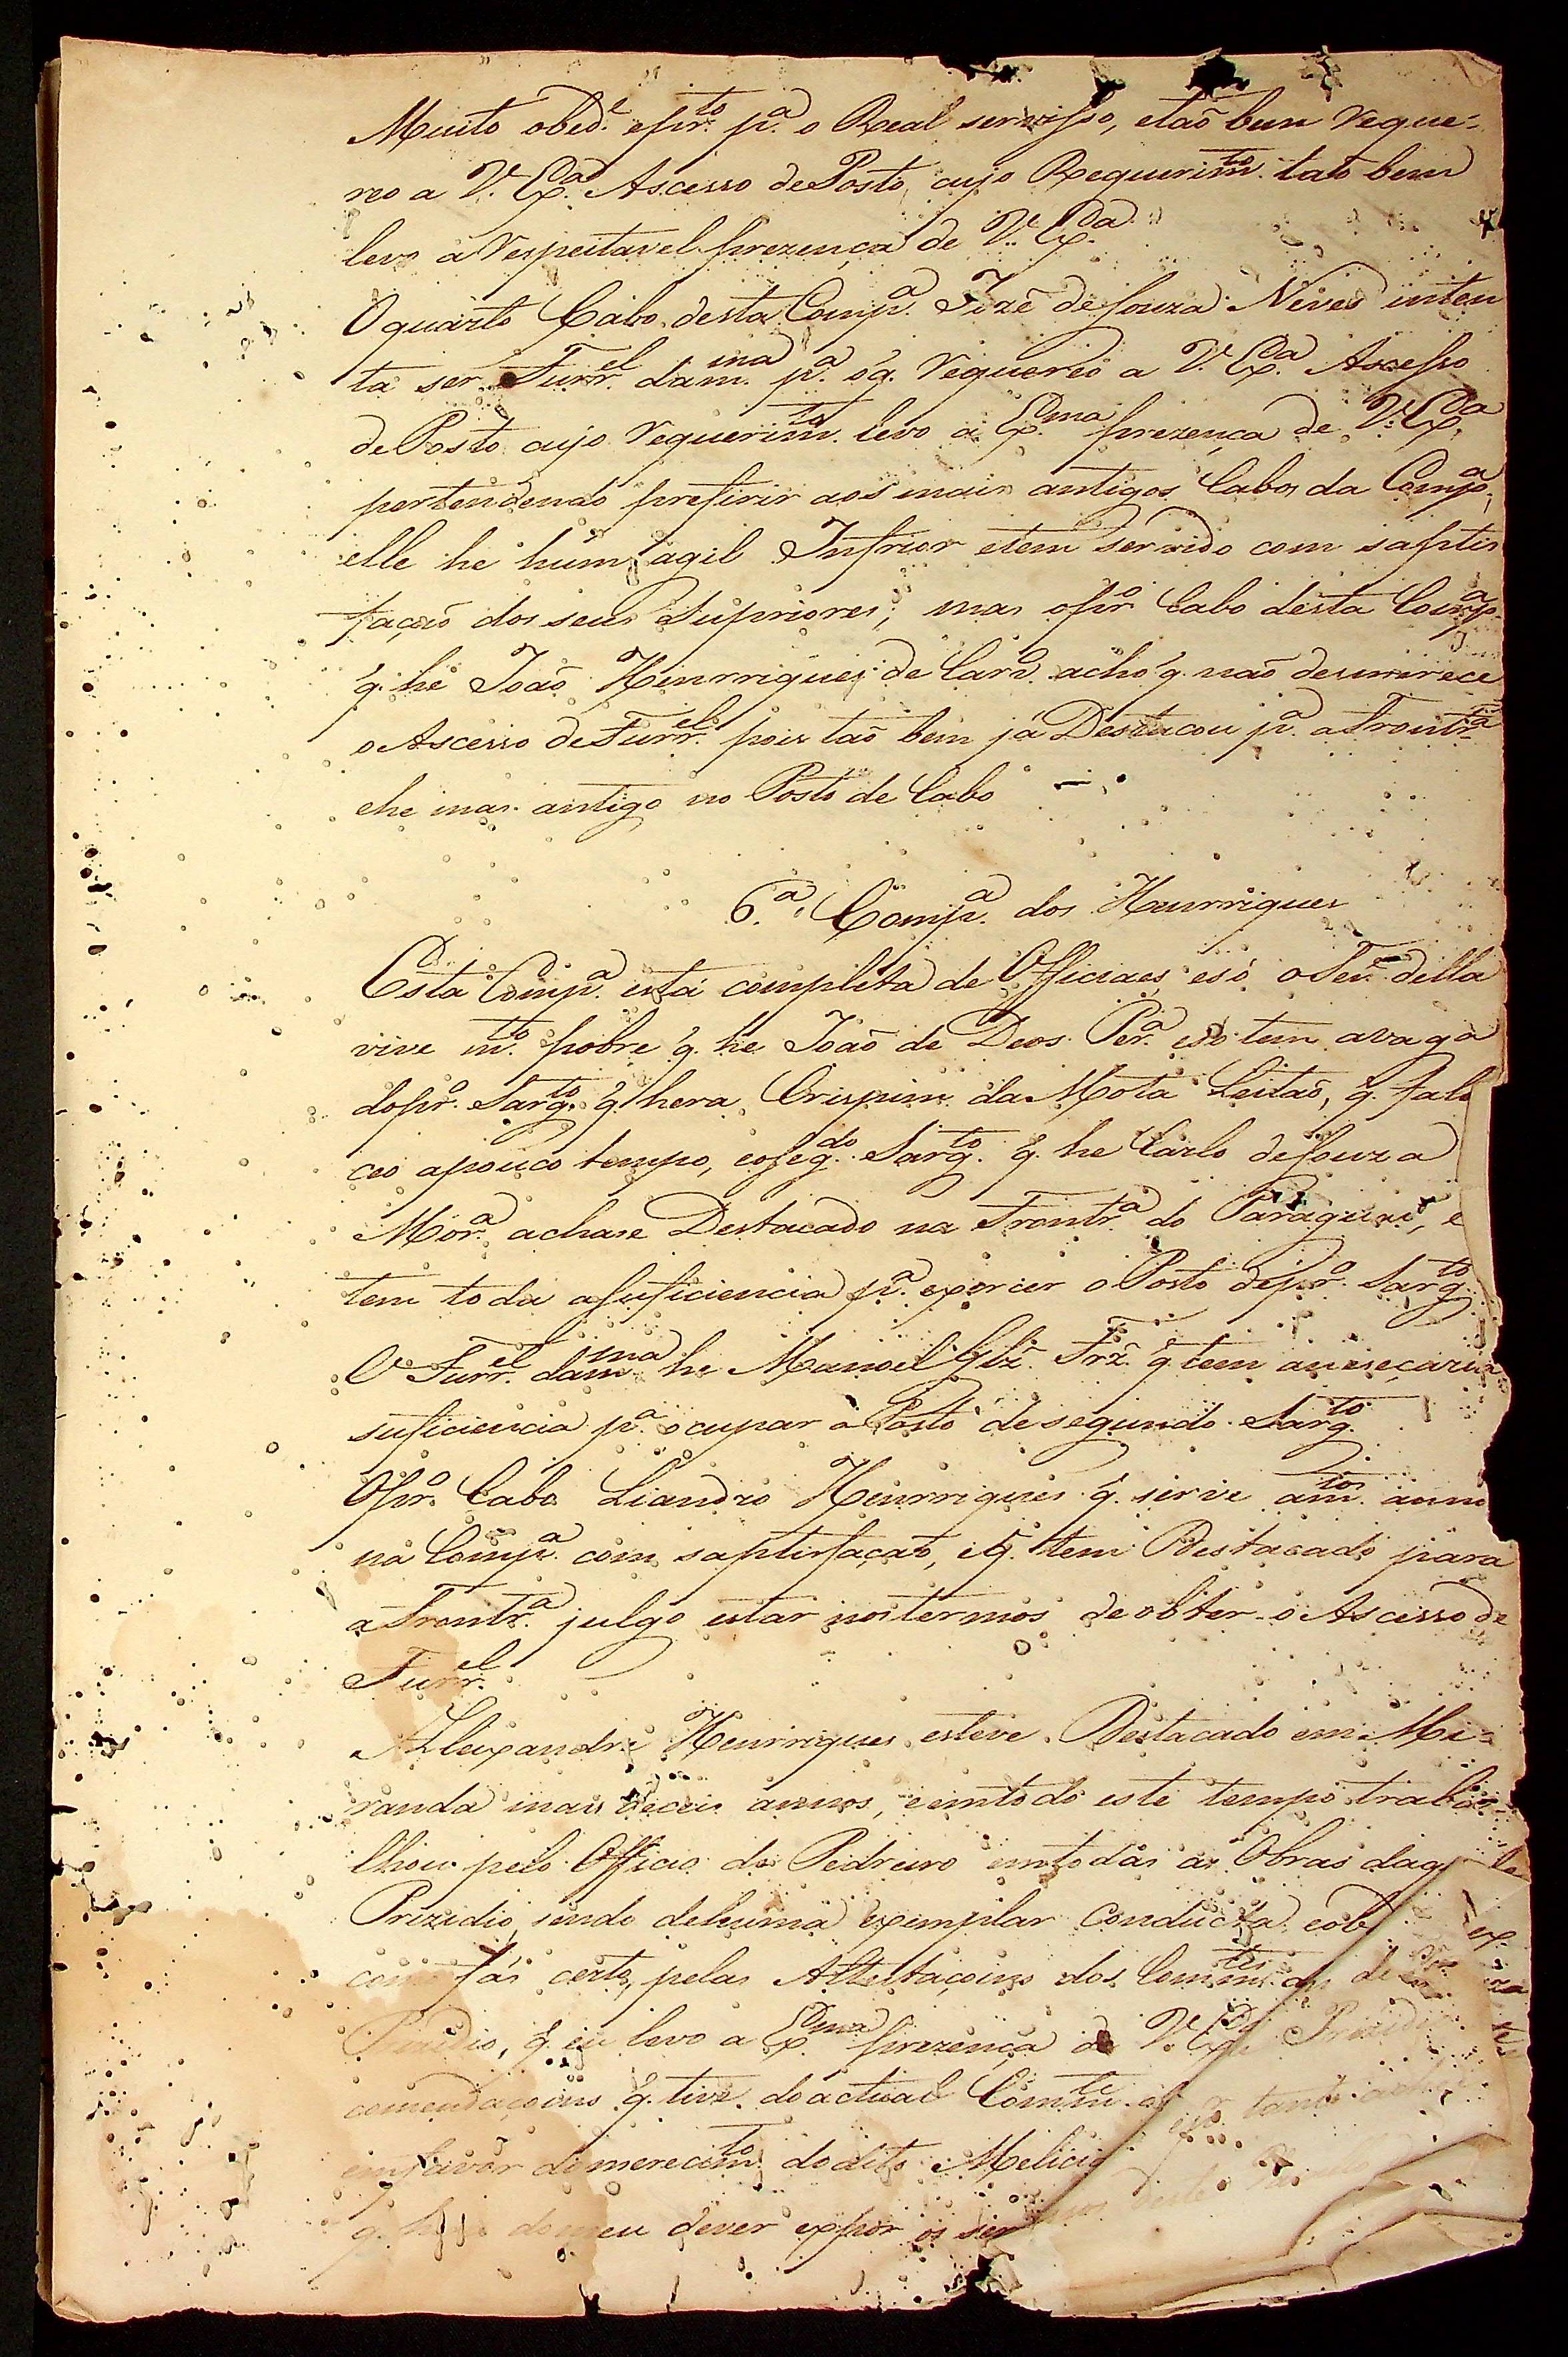 Muito obed.e e pr.to p.a o Real servisso, e taõ bem reque-
reo a V. Ex.a Ascesso de Posto, cujo Requerim.to taõ bem
levo a respeitavel prezença de V. Ex.a
O quarto Cabo desta Comp.a Jozé de Souza Neves inten
ta ser Furr.el da m.ma p.a o q. requereo a V. Ex.a Ascesso
de Posto cujo requerim.to levo a Ex.ma prezença de V. Ex.a
pertendendo prefirir aos mais antigos Cabos da Comp.a,
elle he hum agil Infrior e tem servido com saptis
façaõ dos seus Supriores; mas o pr.o Cabo desta Comp.a
q. he Joaõ Henrriques de Carv.o acho q. naõ desmirece
o Ascesso de Furr.el pois taõ bem já Destacou p.a a Frontr.a
e he mas antigo no Posto de Cabo
6.a Comp.a dos Henrriques
Esta Comp.a está complita de Officiaes, e só o Ten.e della
vive m.to pobre q. he Joaõ de Deos Per.a e só tem a vaga
do pr.o Sarg.to q. hera Crispim da Mota Leitaõ, q. fale
ceo a pouco tempo, e o seg.do Sarg.to q. he Carlo de Souza
Mor.a achase Destacado na Frontr.a do Paraguai, e
tem toda a suficiencia p.a exercer o Posto de pr.o Sarg.to
O Furr.el da m.ma he Manoel Glz. Frz. q. tem a neseçaria
suficiencia p.a ocupar o Posto de segundo Sarg.to
O pr.o Cabo Liandro Henrriques q. serve a m.tos anno
na Comp.a com saptisfaçaõ, e q. tem Destacado para
a Frontr.a julgo estar nos termos de obter o Ascesso de
Furr.el
Allexandre Henrriques esteve Destacado em Mi-
randa mais de ceis annos, e em todo este tempo traba-
lhou pelo Officio de Pedreiro em todas as Obras daq le
Prizidio, sendo de huma exemplar Conducta, e ob
como fás certo, pelas Attestaçoins dos Com.tes de
q. eu levo a Ex.ma prezença de V. Ex.a
comendaçoins q. tive do actual Com.te
em favor do merecim.to do dito Melici
q. do meu dever expor os ser